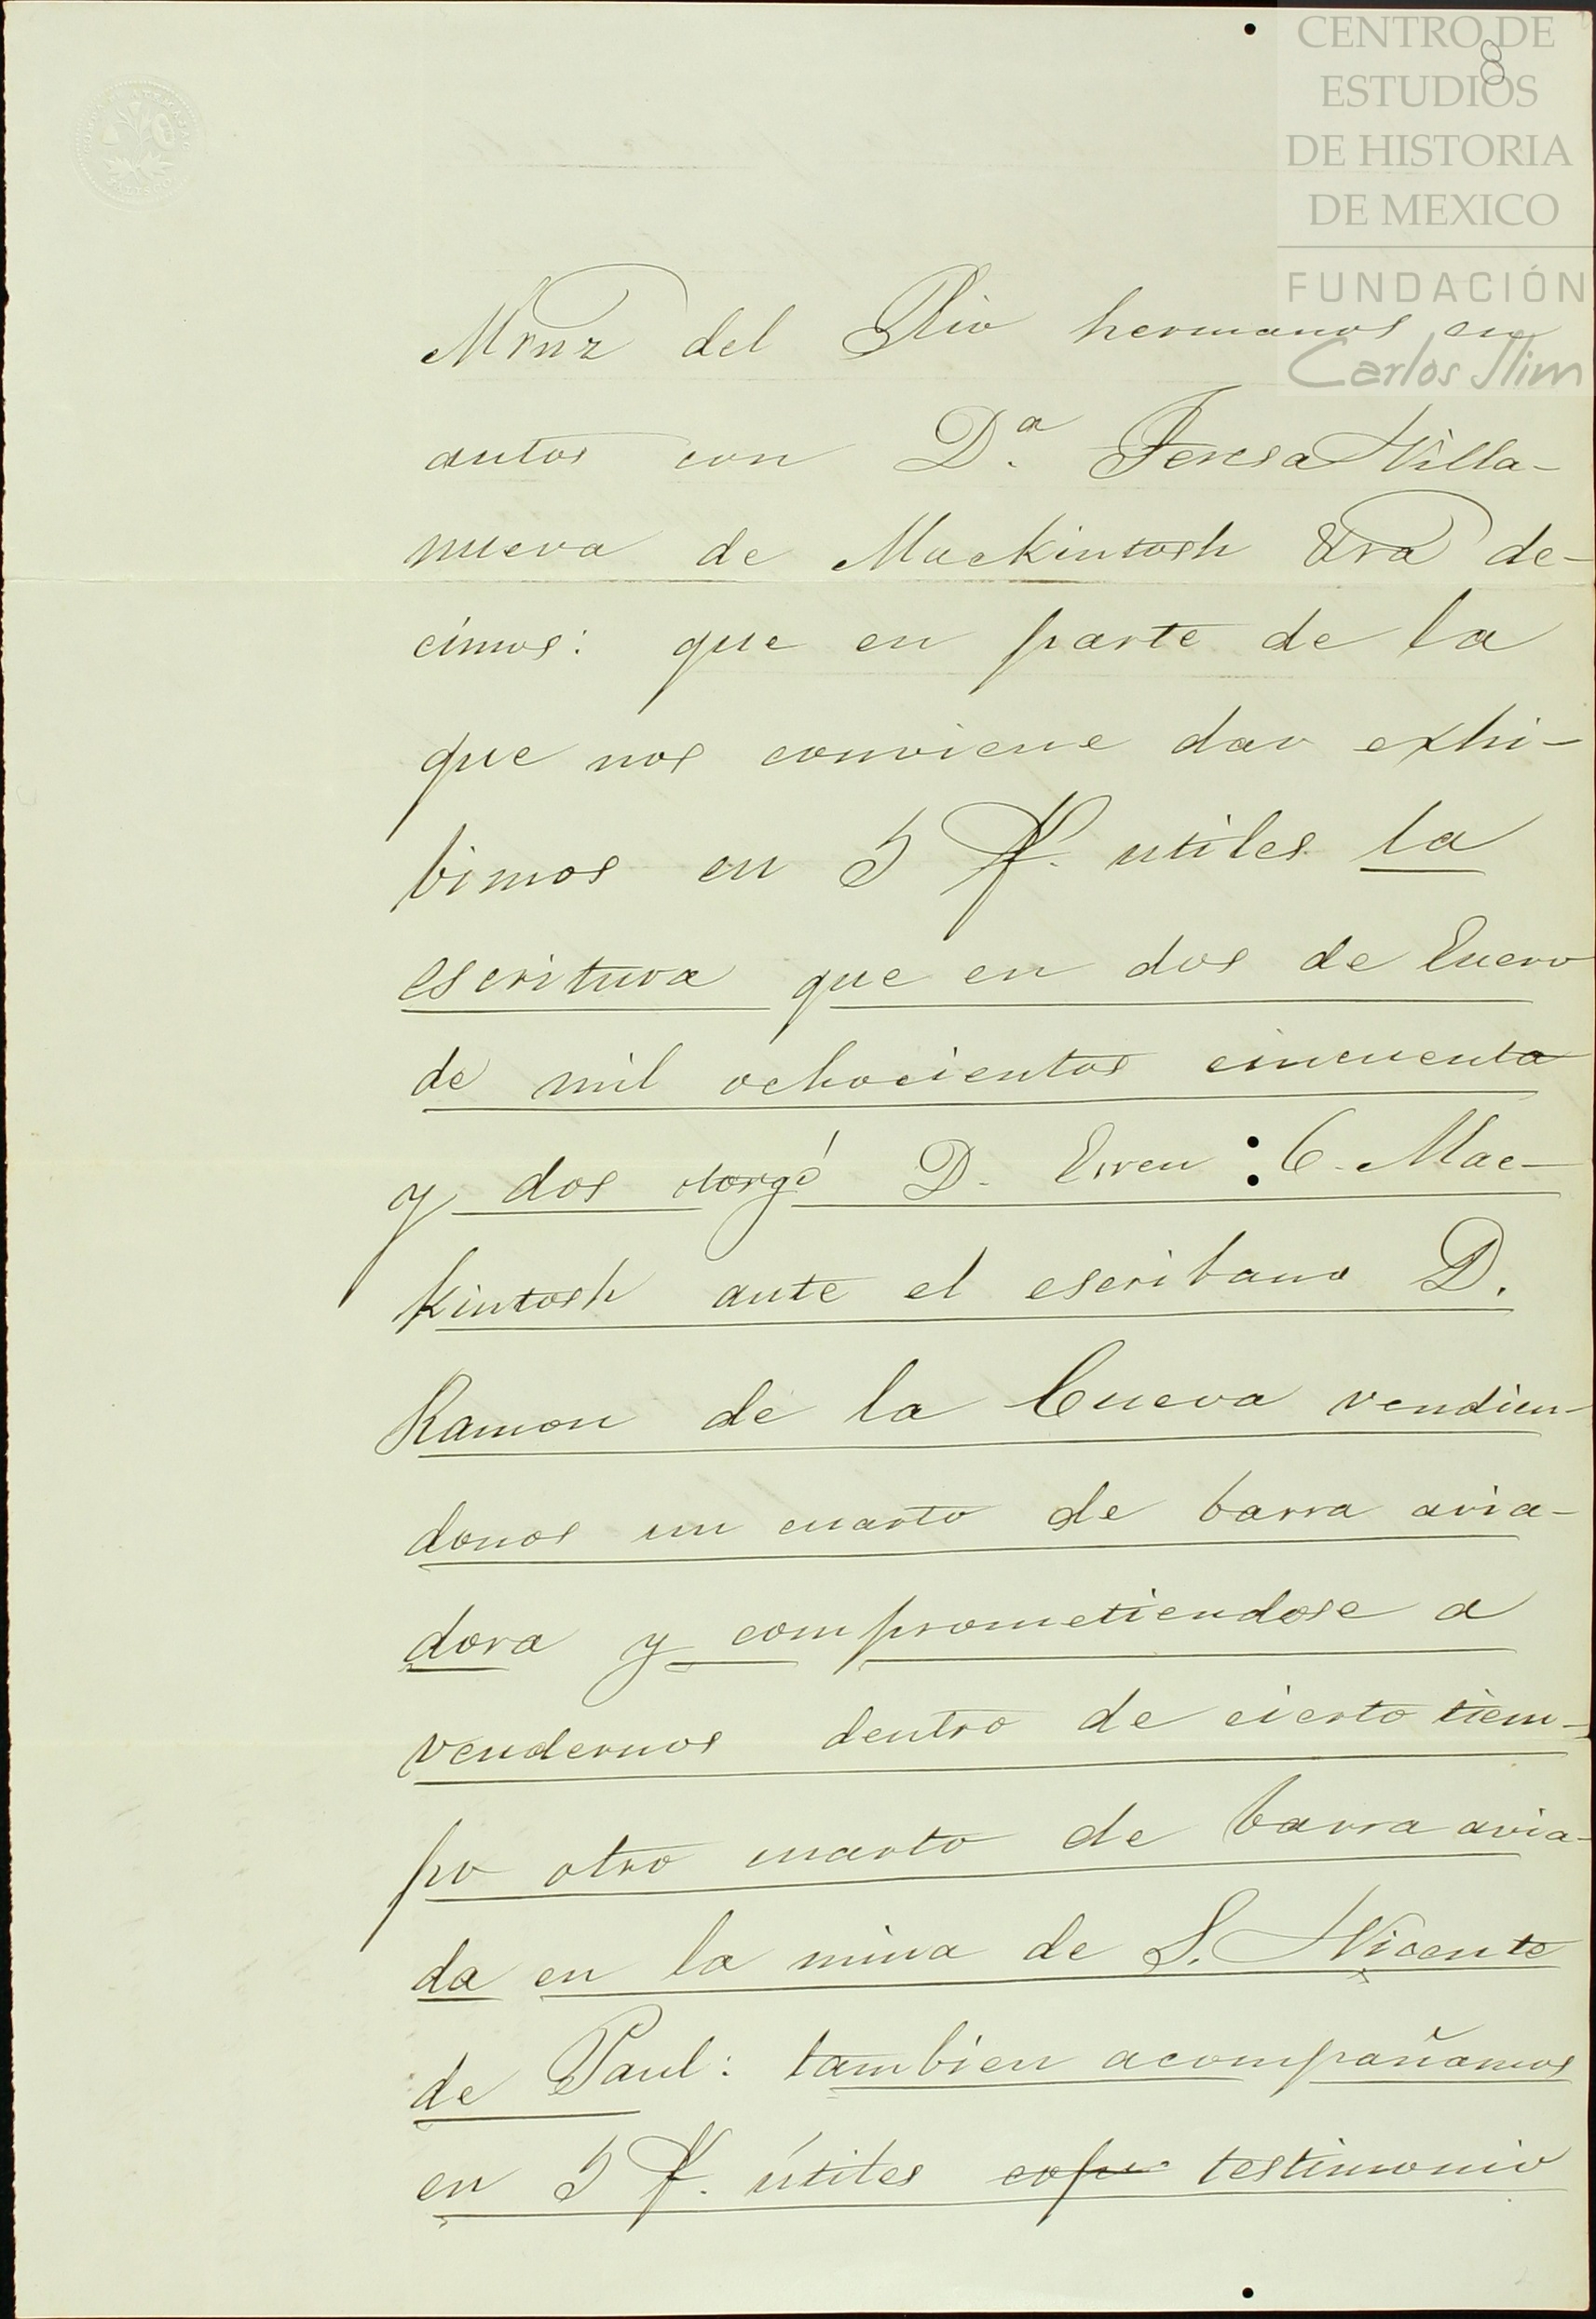 CENTRO DE
ESTUDIOS
DE HISTORIA
DE MEXICO
FUNDACIÓN
Carlos Slim
8
Mrnz del Rio hermanos en
autos con D.ª Teresa Villa-
nueva de Mackintosh &ra de-
cimos: que en parte de la
que nos conviene dar exhi-
bimos en 5 f. utiles la
escritura que en dos de Enero
de mil ochocientos cincuenta
y dos otorgó D. Ewen : C. Mac-
kintosh ante el escribano D.
Ramon de la Cueva vendien-
donos un cuarto de barra avia-
dora y comprometiendose a
vendernos dentro de cierto tiem-
po otro cuarto de barra avia-
da en la mina de S. Vicente
de Paul: tambien acompañamos
en 5 f. útiles testimonio